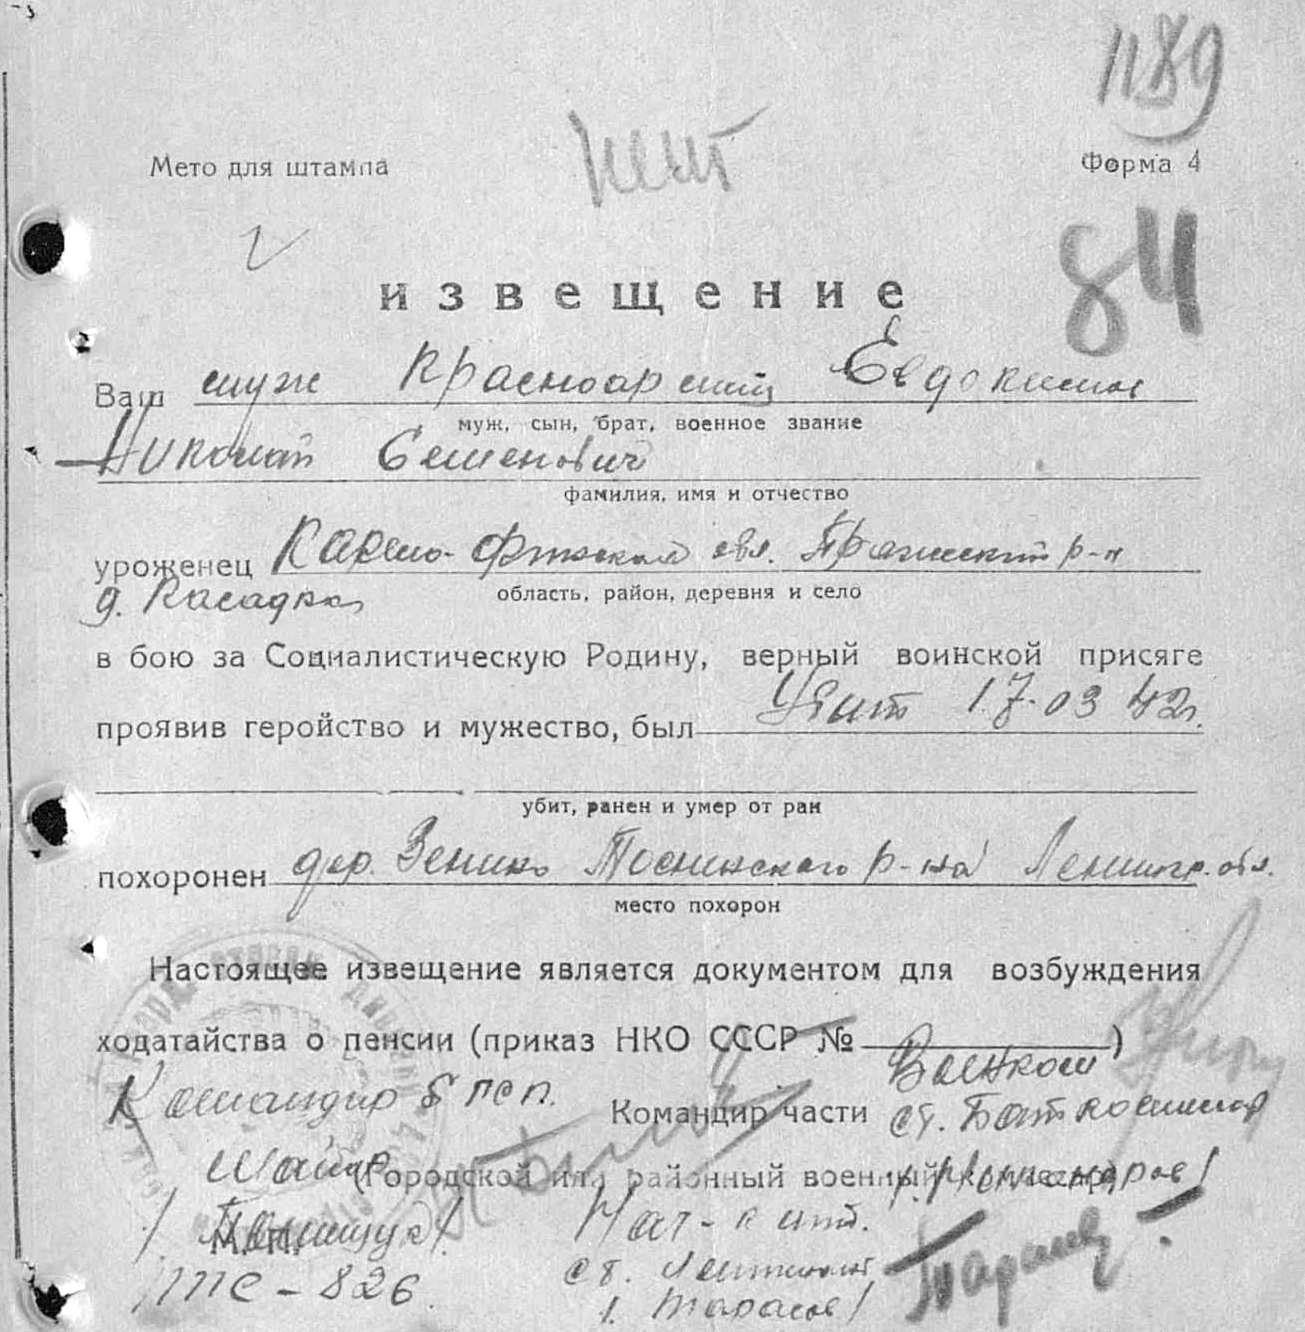 1189
нет
Мето для штампа
Форма 4
84
ИЗВЕЩЕНИЕ
Ваш муж Красноармеец Евдокимов
муж, сын, брат, военное звание
Николай Семенович
фамилия, имя и отчество
уроженец Карело-Финской обл. Пряжинский р-н
область, район, деревня и село
в бою за Социалистическую Родину, верный воинской присяге
проявив геройство и мужество, был Убит 17.03 42г.
убит, ранен и умер от ран
похоронен дер. Зенино Тоснинского р-на Ленингр. обл.
место похорон
Настоящее извещение является документом для возбуждения
ходатайства о пенсии (приказ НКО СССР № )
Командир 6 псп. Командир части Военком
ст. Бат комиссар
Майор (Городской или районный военный комиссар)
М.П. Нач-к
ст. Лейтенант
/Тарасов/
826